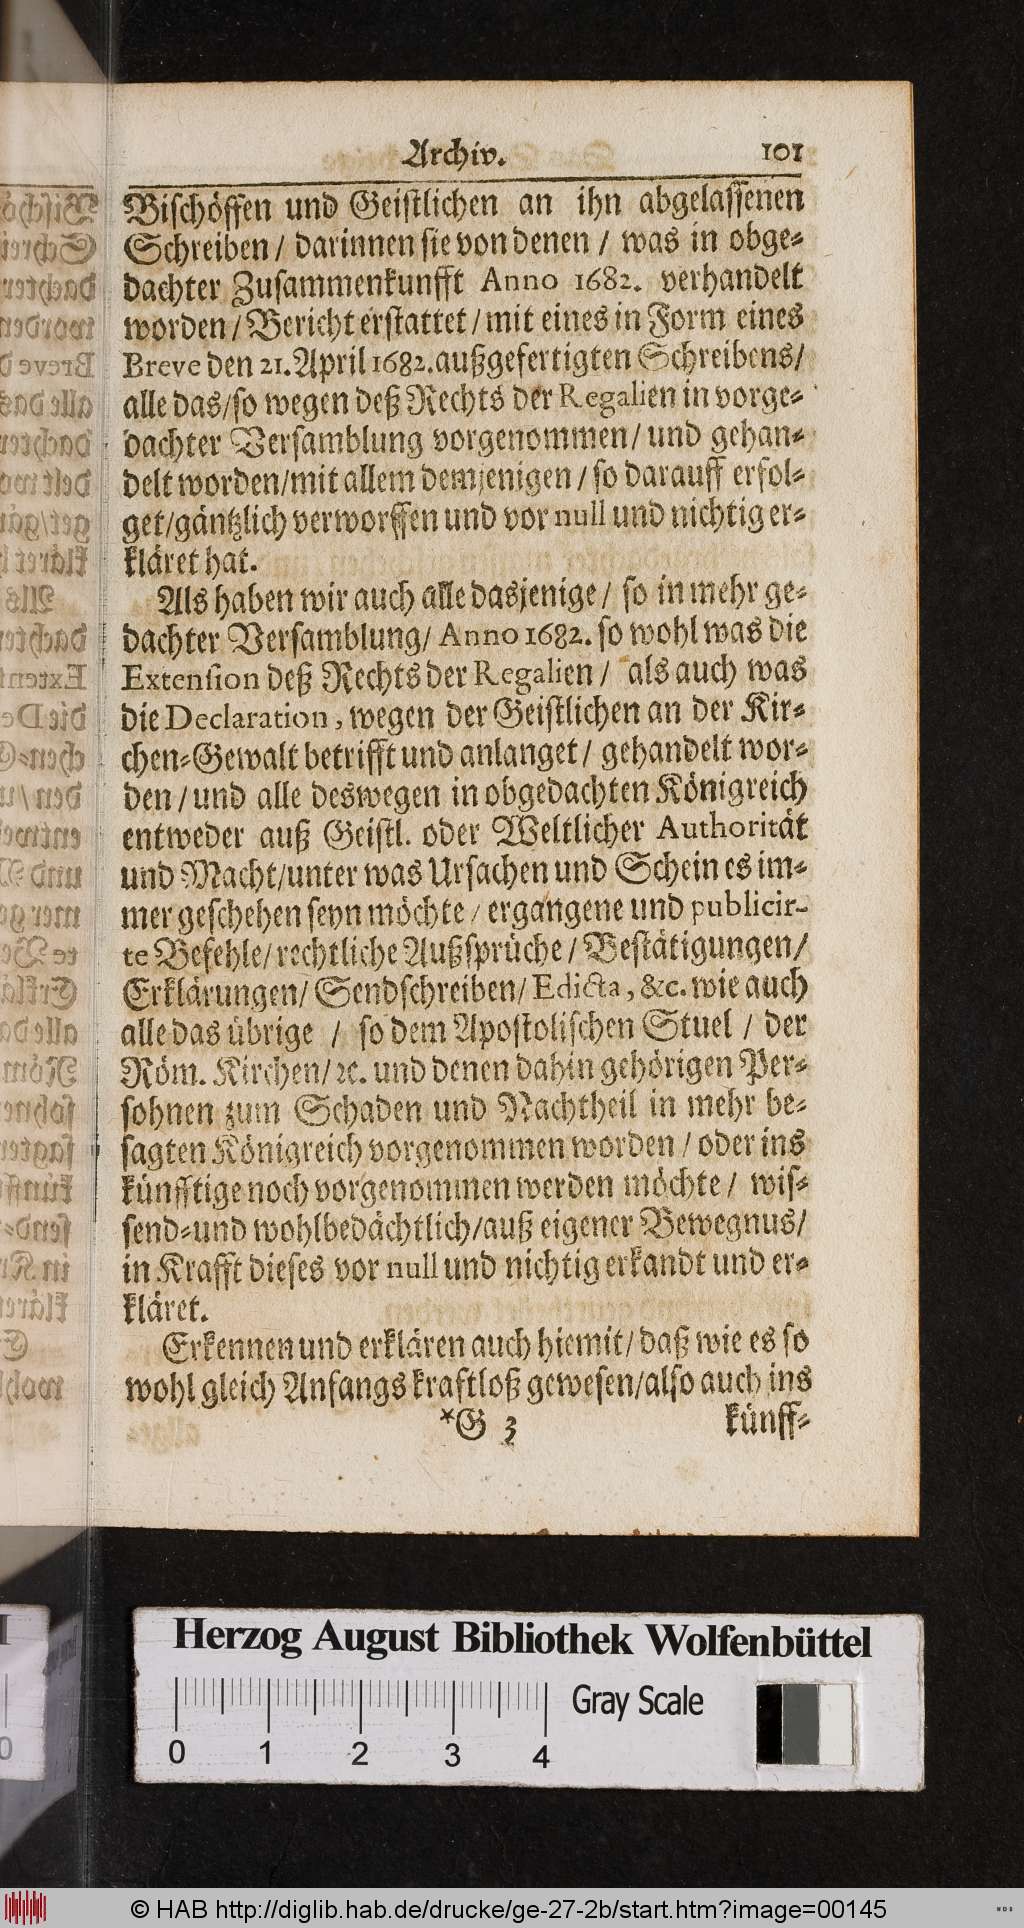 Archiv. 101
Bischöffen und Geistlichen an ihn abgelassenen
Schreiben / darinnen sie von denen / was in obge-
dachter Zusammenkunfft Anno 1682. verhandelt
worden / Bericht erstattet / mit eines in Form eines
Breve den 21. April 1682. außgefertigten Schreibens /
alle das / so wegen deß Rechts der Regalien in vorge-
dachter Versamblung vorgenommen / und gehan-
delt worden / mit allem demjenigen / so darauff erfol-
get / gäntzlich verworffen und vor null und nichtig er-
kläret hat.
Als haben wir auch alle dasjenige / so in mehr ge-
dachter Versamblung / Anno 1682. so wohl was die
Extension deß Rechts der Regalien / als auch was
die Declaration, wegen der Geistlichen an der Kir-
chen-Gewalt betrifft und anlanget / gehandelt wor-
den / und alle deswegen in obgedachten Königreich
entweder auß Geistl. oder Weltlicher Authorität
und Macht / unter was Ursachen und Schein es im-
mer geschehen seyn möchte / ergangene und publicir-
te Befehle / rechtliche Außsprüche / Bestätigungen /
Erklärungen / Sendschreiben / Edicta, &c. wie auch
alle das übrige / so dem Apostolischen Stuel / der
Röm. Kirchen / ꝛc. und denen dahin gehörigen Per-
sohnen zum Schaden und Nachtheil in mehr be-
sagten Königreich vorgenommen worden / oder ins
künfftige noch vorgenommen werden möchte / wis-
send- und wohlbedächtlich / auß eigener Bewegnus /
in Krafft dieses vor null und nichtig erkandt und er-
kläret.
Erkennen und erklären auch hiemit / daß wie es so
wohl gleich Anfangs kraftloß gewesen / also auch ins
*G 3 künff-
Herzog August Bibliothek Wolfenbüttel
Gray Scale
0 1 2 3 4
© HAB http://diglib.hab.de/drucke/ge-27-2b/start.htm?image=00145